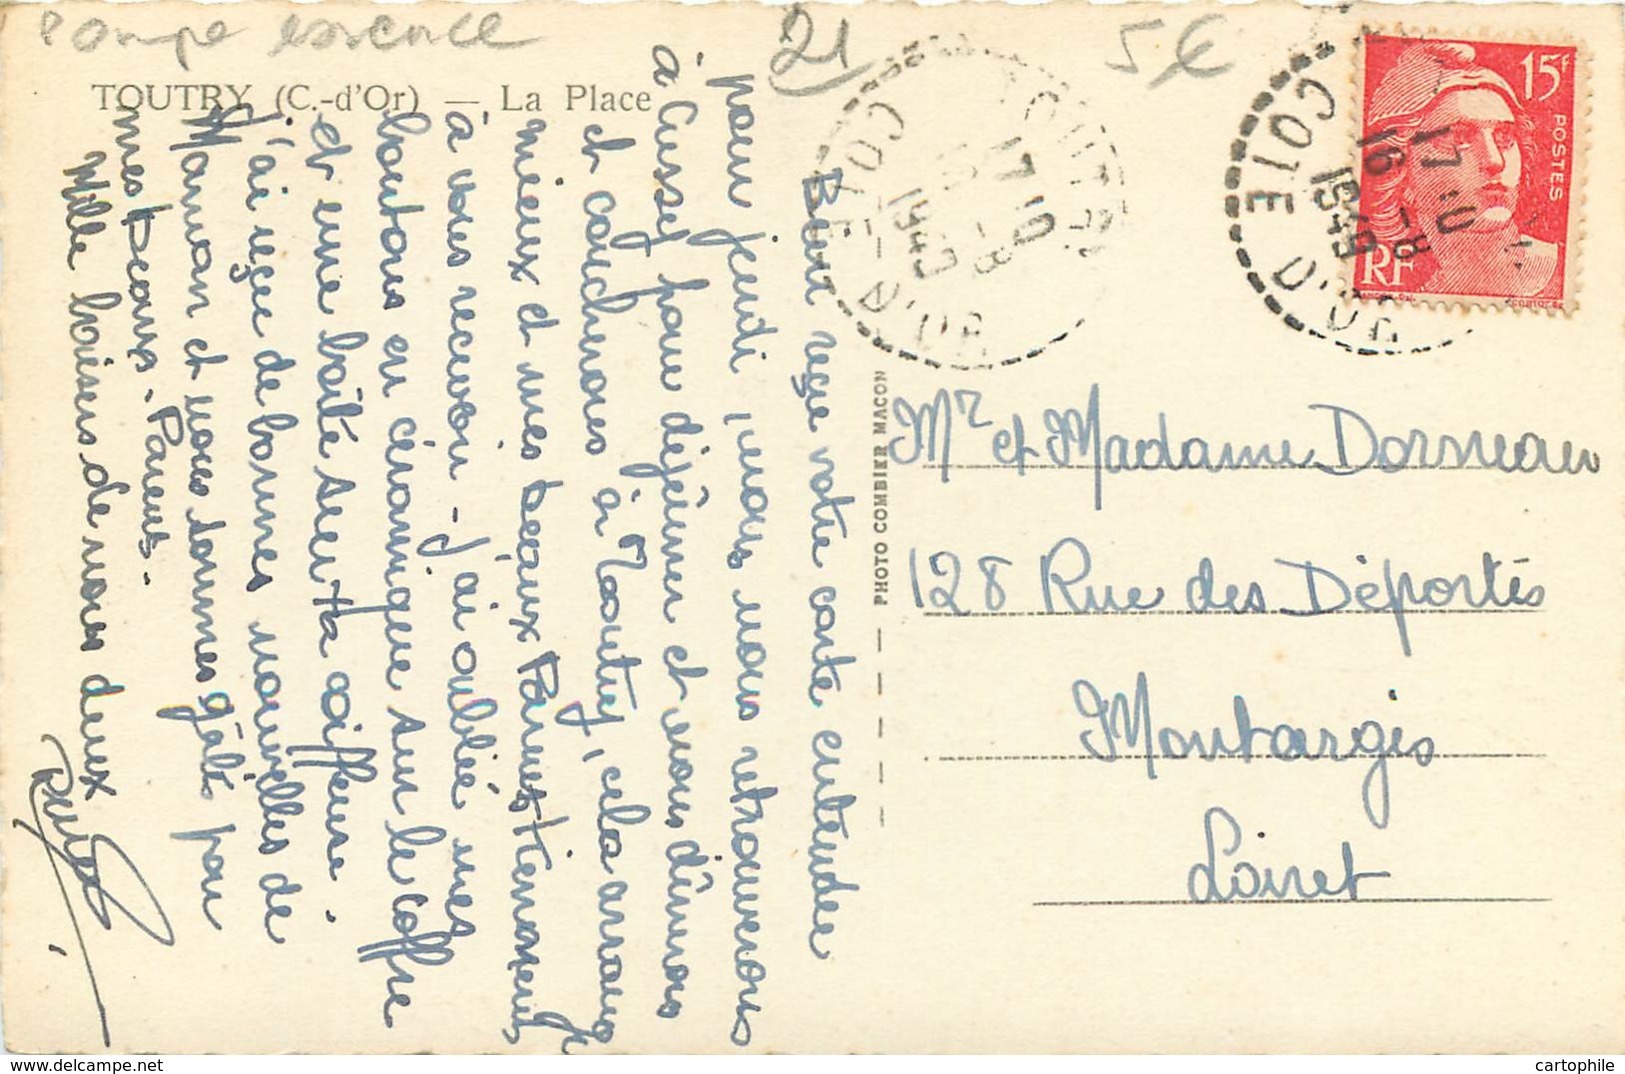 pompe essence
21
5€
TOUTRY (C.-d'Or) — La Place
Bien reçue votre carte entendue
pour jeudi, nous nous retrouverons
à Cussey pour déjeûner et nous dînerons
et coucherons à Toutry, cela arrange
mieux et mes beaux Parents tiennent
à vous recevoir - J'ai oublié mes
boutons en céramique sur le coffre
et une boîte sur ta coiffeuse.
J'ai reçue de bonnes nouvelles de
Maman et nous sommes gâtés par
mes beaux-Parents.
Mille baisers de nous deux
TOUTRY
17 10
16 -8
1949
COTE-D'OR
17 10
16 -8
1949
COTE D'OR
15F
POSTES
RF
PHOTO COMBIER MACON
Mr et Madame Dorneau
128 Rue des Déportés
Montargis
Loiret
cartophile